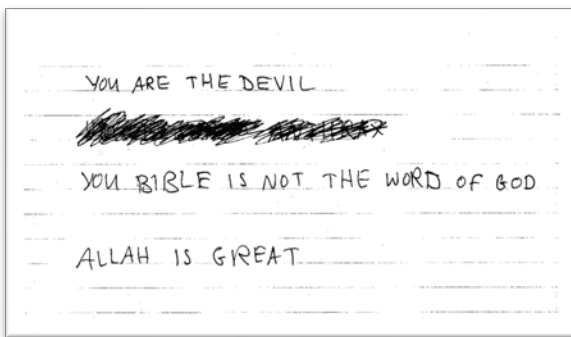 YOU ARE THE DEVIL
YOU BIBLE IS NOT THE WORD OF GOD
ALLAH IS GREAT